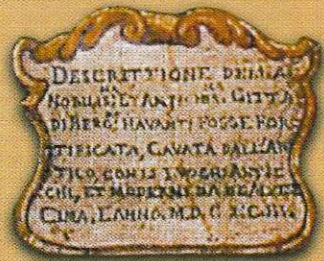 DESCRITTIONE DELLA
NOBILISS.MA ET ANTICHISS. CITTÀ
DI BERG.º INAVANTI FOSSE FOR-
TIFICATA, CAVATA DALL'AN
TICO, CON LI LVOGHI ANTI
CHI, ET MODERNI DA
CIMA, L'ANNO. M.D.C